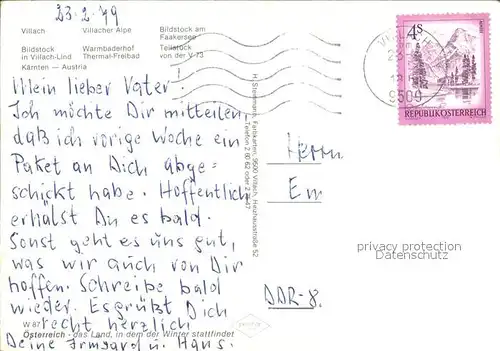 23.2.79
Villach
Villacher Alpe
Bildstock am
Faakersee
Bildstock
in Villach-Lind
Warmbaderhof
Thermal-Freibad
Teilstück
von der V-73
Kärnten — Austria
Mein lieber Vater!
Ich möchte Dir mitteilen,
daß ich vorige Woche ein
Paket an Dich abge-
schickt habe. Hoffentlich
erhälst Du es bald.
Sonst geht es uns gut,
was wir auch von Dir
hoffen. Schreibe bald
wieder. Es grüßt Dich
recht herzlich
Deine Irmgard u. Hans.
W 87
Österreich - das Land, in dem der Winter stattfindet
Farbkarten, 9500 Villach, Heizhausstraße 52
Telefon 2 60 62 oder
4s
REPUBLIK ÖSTERREICH
9500
Herrn
Em
DDR-8.
privacy protection
Datenschutz